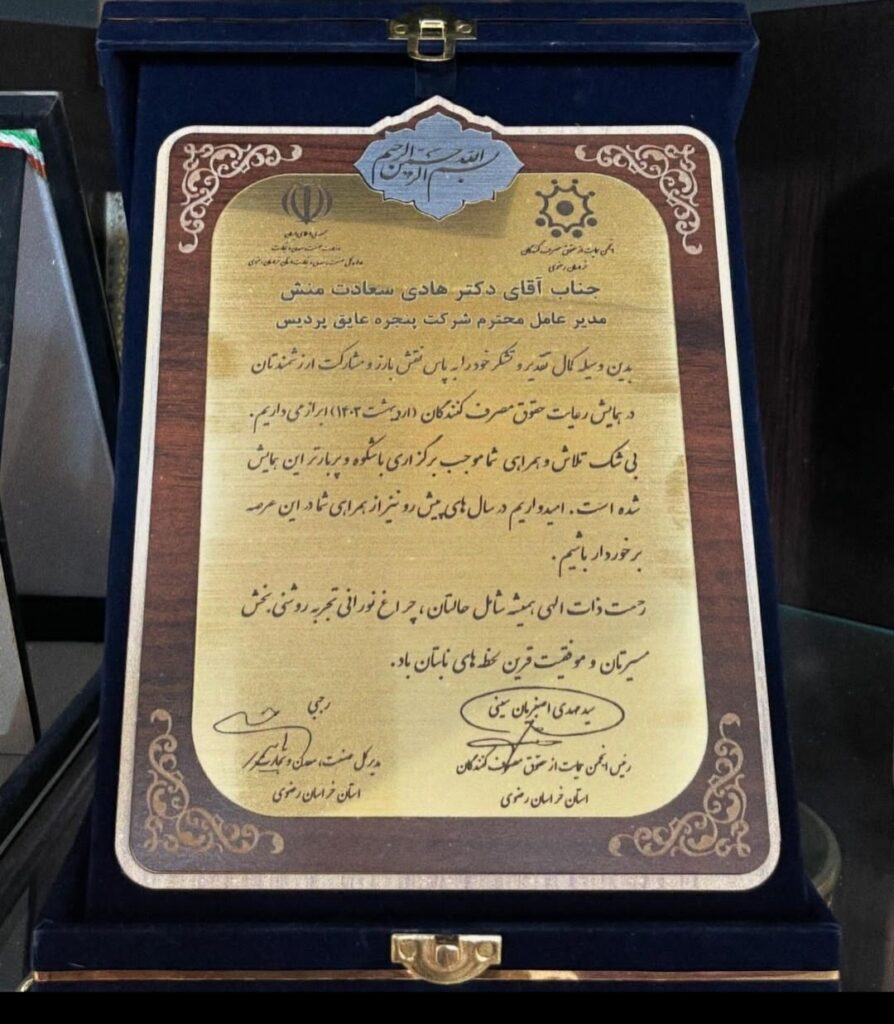 بسم الله الرحمن الرحیم
جمهوری اسلامی ایران
وزارت صنعت، معدن و تجارت
اداره کل صنعت، معدن و تجارت استان خراسان رضوی
انجمن حمایت از حقوق مصرف کنندگان
خراسان رضوی
جناب آقای دکتر هادی سعادت منش
مدیر عامل محترم شرکت پنجره عایق پردیس
بدین وسیله کمال تقدیر و تشکر خود را به پاس نقش بارز و مشارکت ارزشمندتان
در همایش رعایت حقوق مصرف کنندگان (اردیبهشت ۱۴۰۳) ابراز می داریم.
بی شک تلاش و همراهی شما موجب برگزاری باشکوه و پربارتر این همایش
شده است. امیدواریم در سال های پیش رو نیز از همراهی شما در این عرصه
برخوردار باشیم.
رحمت ذات الهی همیشه شامل حالتان، چراغ نورانی تجربه روشنی بخش
مسیرتان و موفقیت قرین لحظه های نابتان باد.
سید مهدی
رئیس انجمن حمایت از حقوق مصرف کنندگان
استان خراسان رضوی
رجبی
مدیر کل صنعت، معدن و تجارت
استان خراسان رضوی